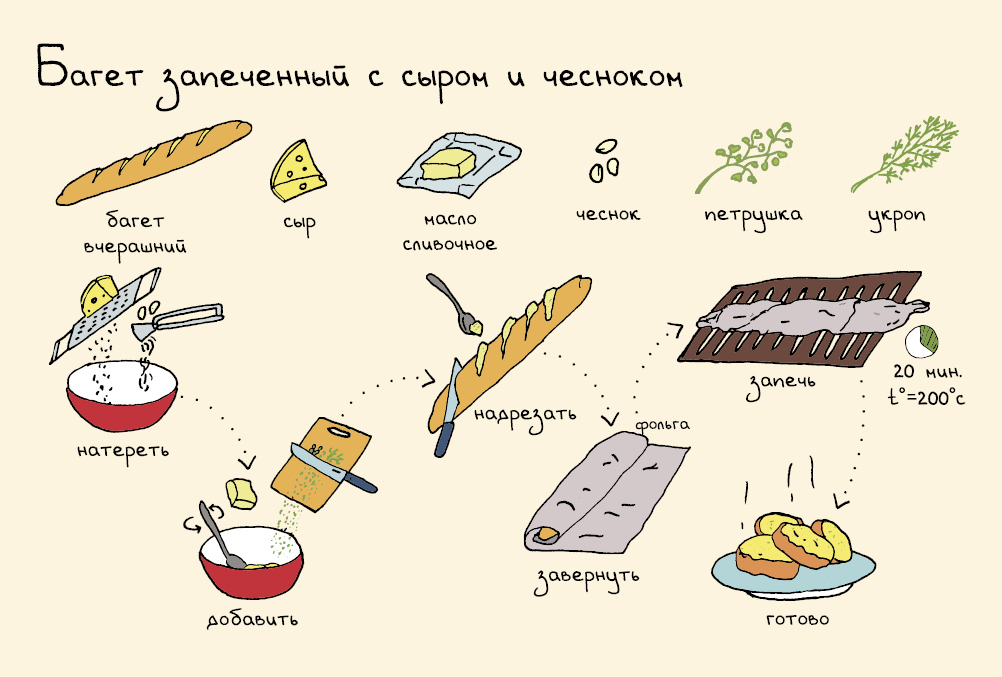 Багет запеченный с сыром и чесноком
багет
вчерашний
сыр
масло
сливочное
чеснок
петрушка
укроп
натереть
добавить
надрезать
фольга
завернуть
запечь
20 мин.
t°=200°c
готово